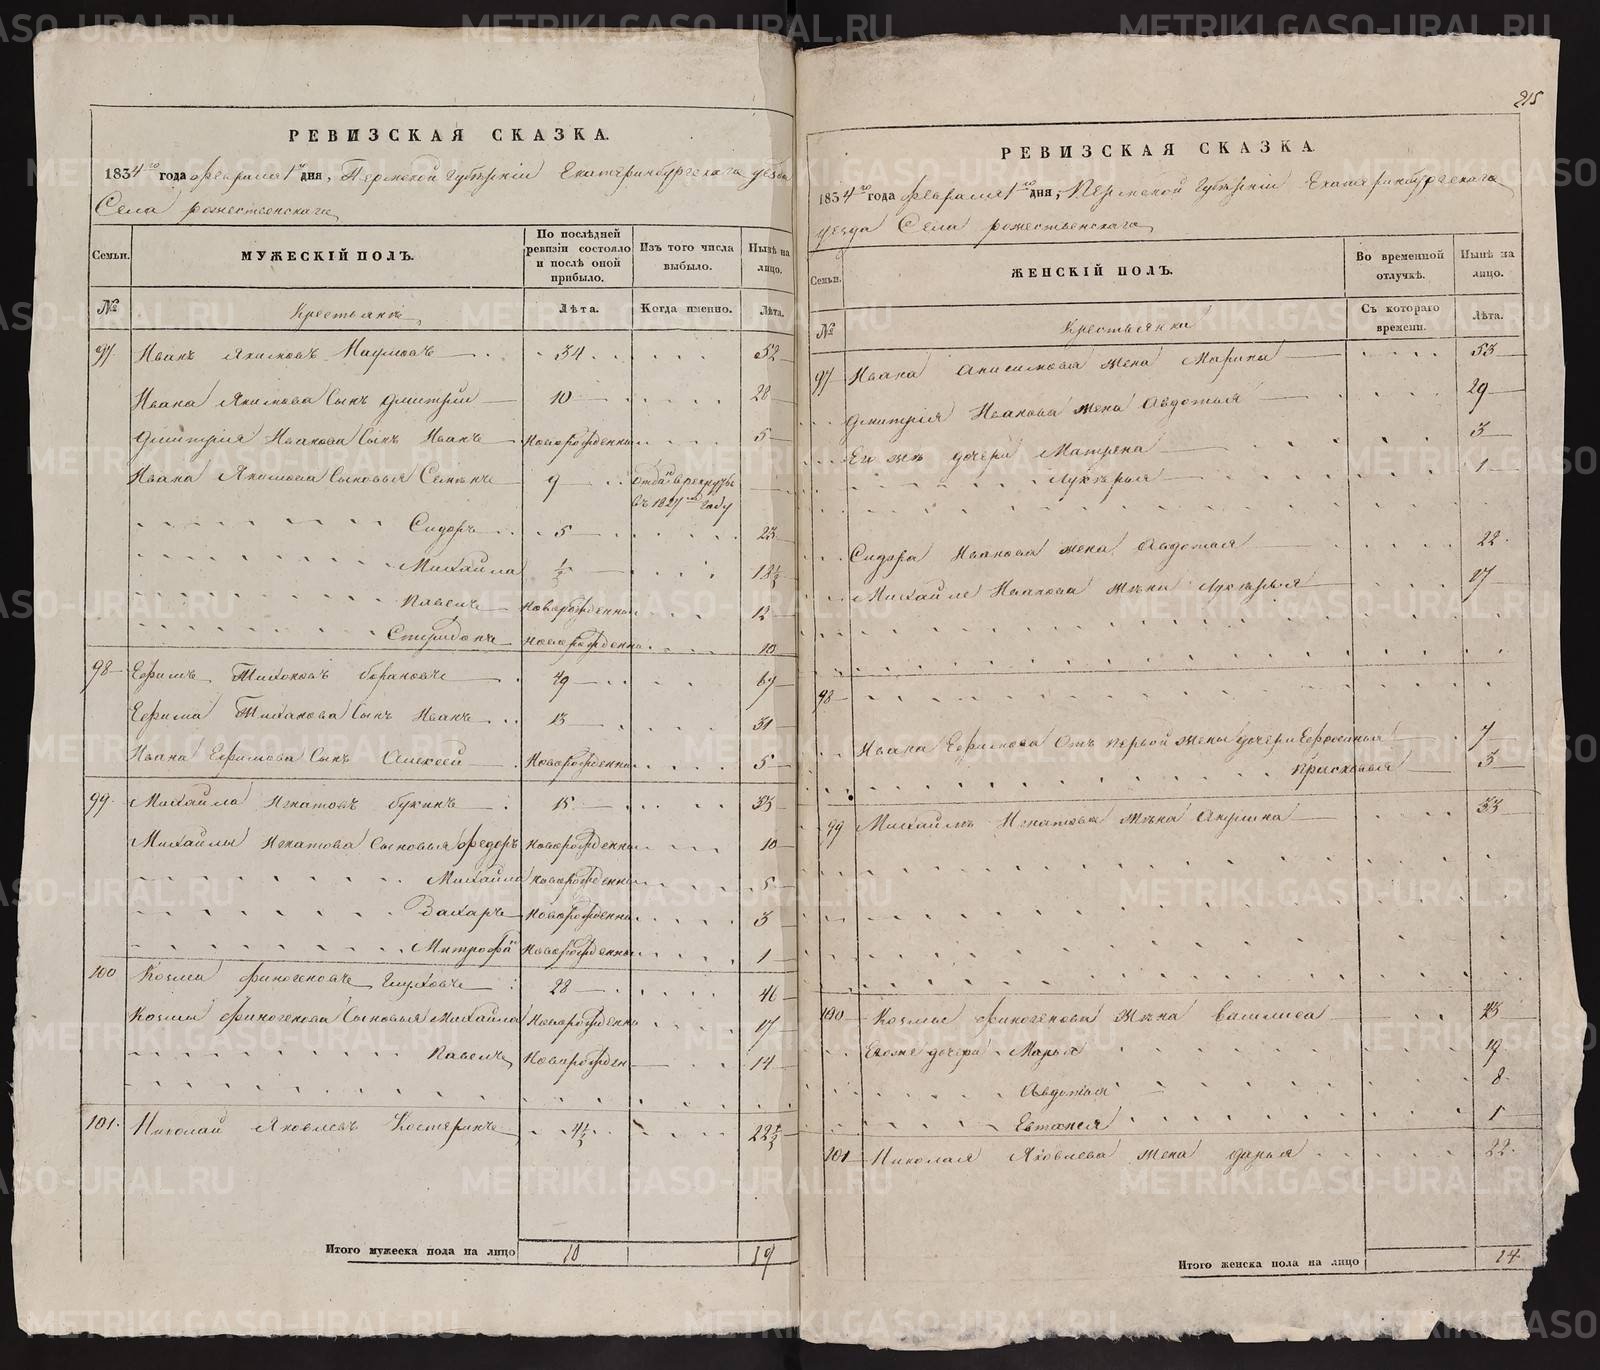 215
РЕВИЗСКАЯ СКАЗКА.
1834 го года февраля 1 го дня, Пермской Губерніи Екатеринбургскага уезда
Села рожественскага
Семьи.
МУЖЕСКІЙ ПОЛЪ.
По послѣдней ревизіи состояло и послѣ оной прибыло.
Изъ того числа выбыло.
Нынѣ на лицо.
№
Крестьяне
Лѣта.
Когда именно.
Лѣта.
97 Иванъ Якимовъ Наумовъ 34 52
Ивана Якимова Сынъ Дмитрий 10 28
Дмитрия Иванова Сынъ Иванъ новорожденны 5
Ивана Якимова Сыновья Семенъ 9 отданъ в рекруты
въ 1827 году
Сидоръ 5 23
Михайла ½ 18½
Павелъ новорожденны 12
Спиридонъ новорожденны 10
98 Ефимъ Тихоновъ борановъ 49 67
Ефима Тиханова Сынъ Иванъ 13 31
Ивана Ефимова Сынъ Алексей Новорожденны 5
99 Михайла Игнатовъ букинъ 15 33
Михайлы Игнатова Сыновья федоръ новорожденны 10
Михайла новорожденны 5
Захаръ новорожденны 3
Митрофа новорожденны 1
100 Козма финогеновъ глуховъ 28 46
Козмы финогенова Сыновья Михайла Новорожденны 17
Павелъ Новорожден 14
101 Николай Яковлевъ Костеринъ 4½ 22½
Итого мужеска пола на лицо 10 19
РЕВИЗСКАЯ СКАЗКА
1834 го года февраля 1 го дня, Пермской Губерніи Екатеринбургскага
уезда Села рожественскага
Семьи.
ЖЕНСКІЙ ПОЛЪ.
Во временной отлучкѣ.
Нынѣ на лицо.
№
Крестьянки
Съ котораго времени.
Лѣта.
97 Ивана жена Марина 53
Дмитрія Иванова жена Авдотья 29
дочери Матрена 3
Лукерья 1
Сидора Иванова жена Авдотья 22
Михайле Иванова жена Лукерья 27
98
Ивана Ефимова Отъ первой жены дочери Ефросинья 7
Присковья 3
99 Михайлы Игнатова жена Акулина 33
100 Козмы финогенова жена Василиса 43
Евоже дочери Марья 19
Авдотья 8
1
101 Николая Яковлева жена дарья 22
Итого женска пола на лицо 14
METRIKI.GASO-URAL.RU